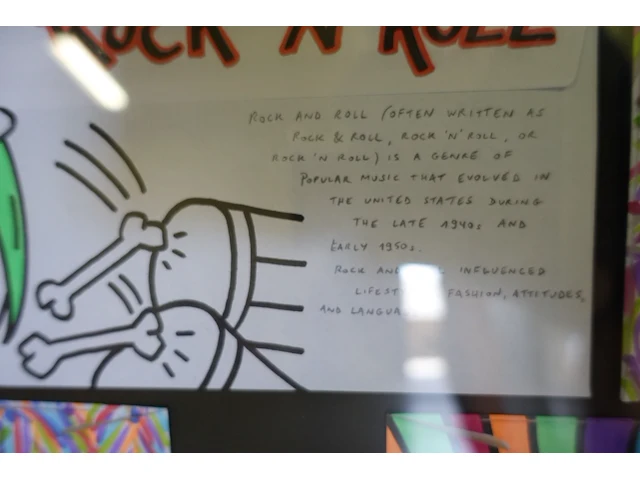 ROCK 'N' ROLL
ROCK AND ROLL (OFTEN WRITTEN AS
ROCK & ROLL, ROCK 'N' ROLL, OR
ROCK 'N ROLL) IS A GENRE OF
POPULAR MUSIC THAT EVOLVED IN
THE UNITED STATES DURING
THE LATE 1940s AND
EARLY 1950s.
ROCK INFLUENCED
FASHION, ATTITUDES,
AND